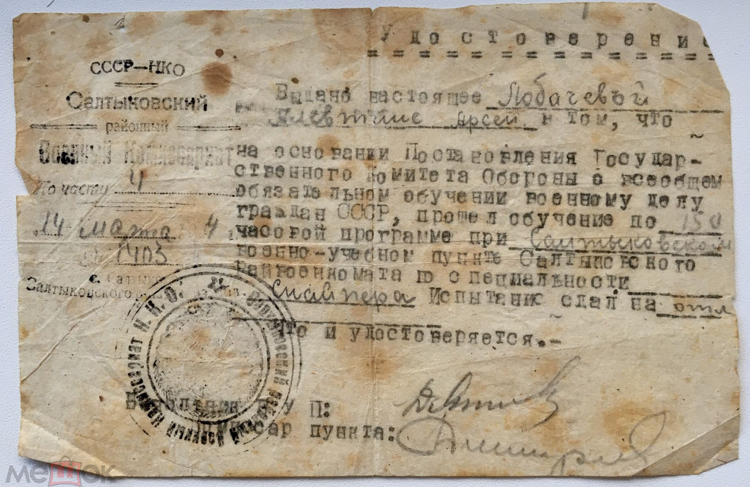 Удостоверение
СССР-НКО
Салтыковский
районный
Военный Комиссариат
По части 4
14 марта 4
№ 1403
с. Салты
Салтыковского
Выдано настоящее Лобачевой
Арсен в том, что
на основании Постановления Государ-
ственного комитета Обороны о всеобщем
обязательном обучении военному делу
граждан СССР, прошел обучение по 150
часовой программе при Салтыковском
военно-учебном пункте Салтыковского
Райвоенкомата по специальности
Снайпера Испытание сдал на отл
что и удостоверяется.-
Н.К.О.
П:
пункта:
мешок